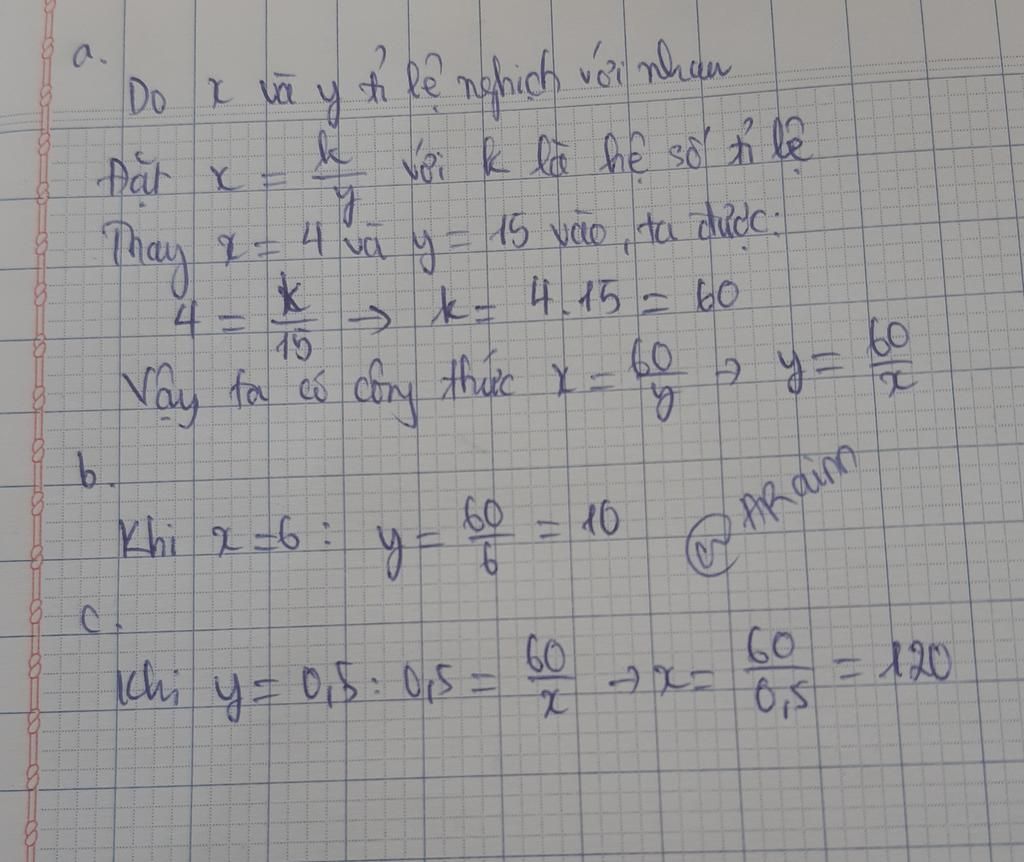 a.
Do x và y tỉ lệ nghịch với nhau
Đặt x = k/y với k là hệ số tỉ lệ
Thay x = 4 và y = 15 vào, ta được:
4 = k/15 → k = 4.15 = 60
Vậy ta có công thức x = 60/y → y = 60/x
b.
Khi x = 6 : y = 60/6 = 10
c.
Khi y = 0,5 : 0,5 = 60/x → x = 60/0,5 = 120